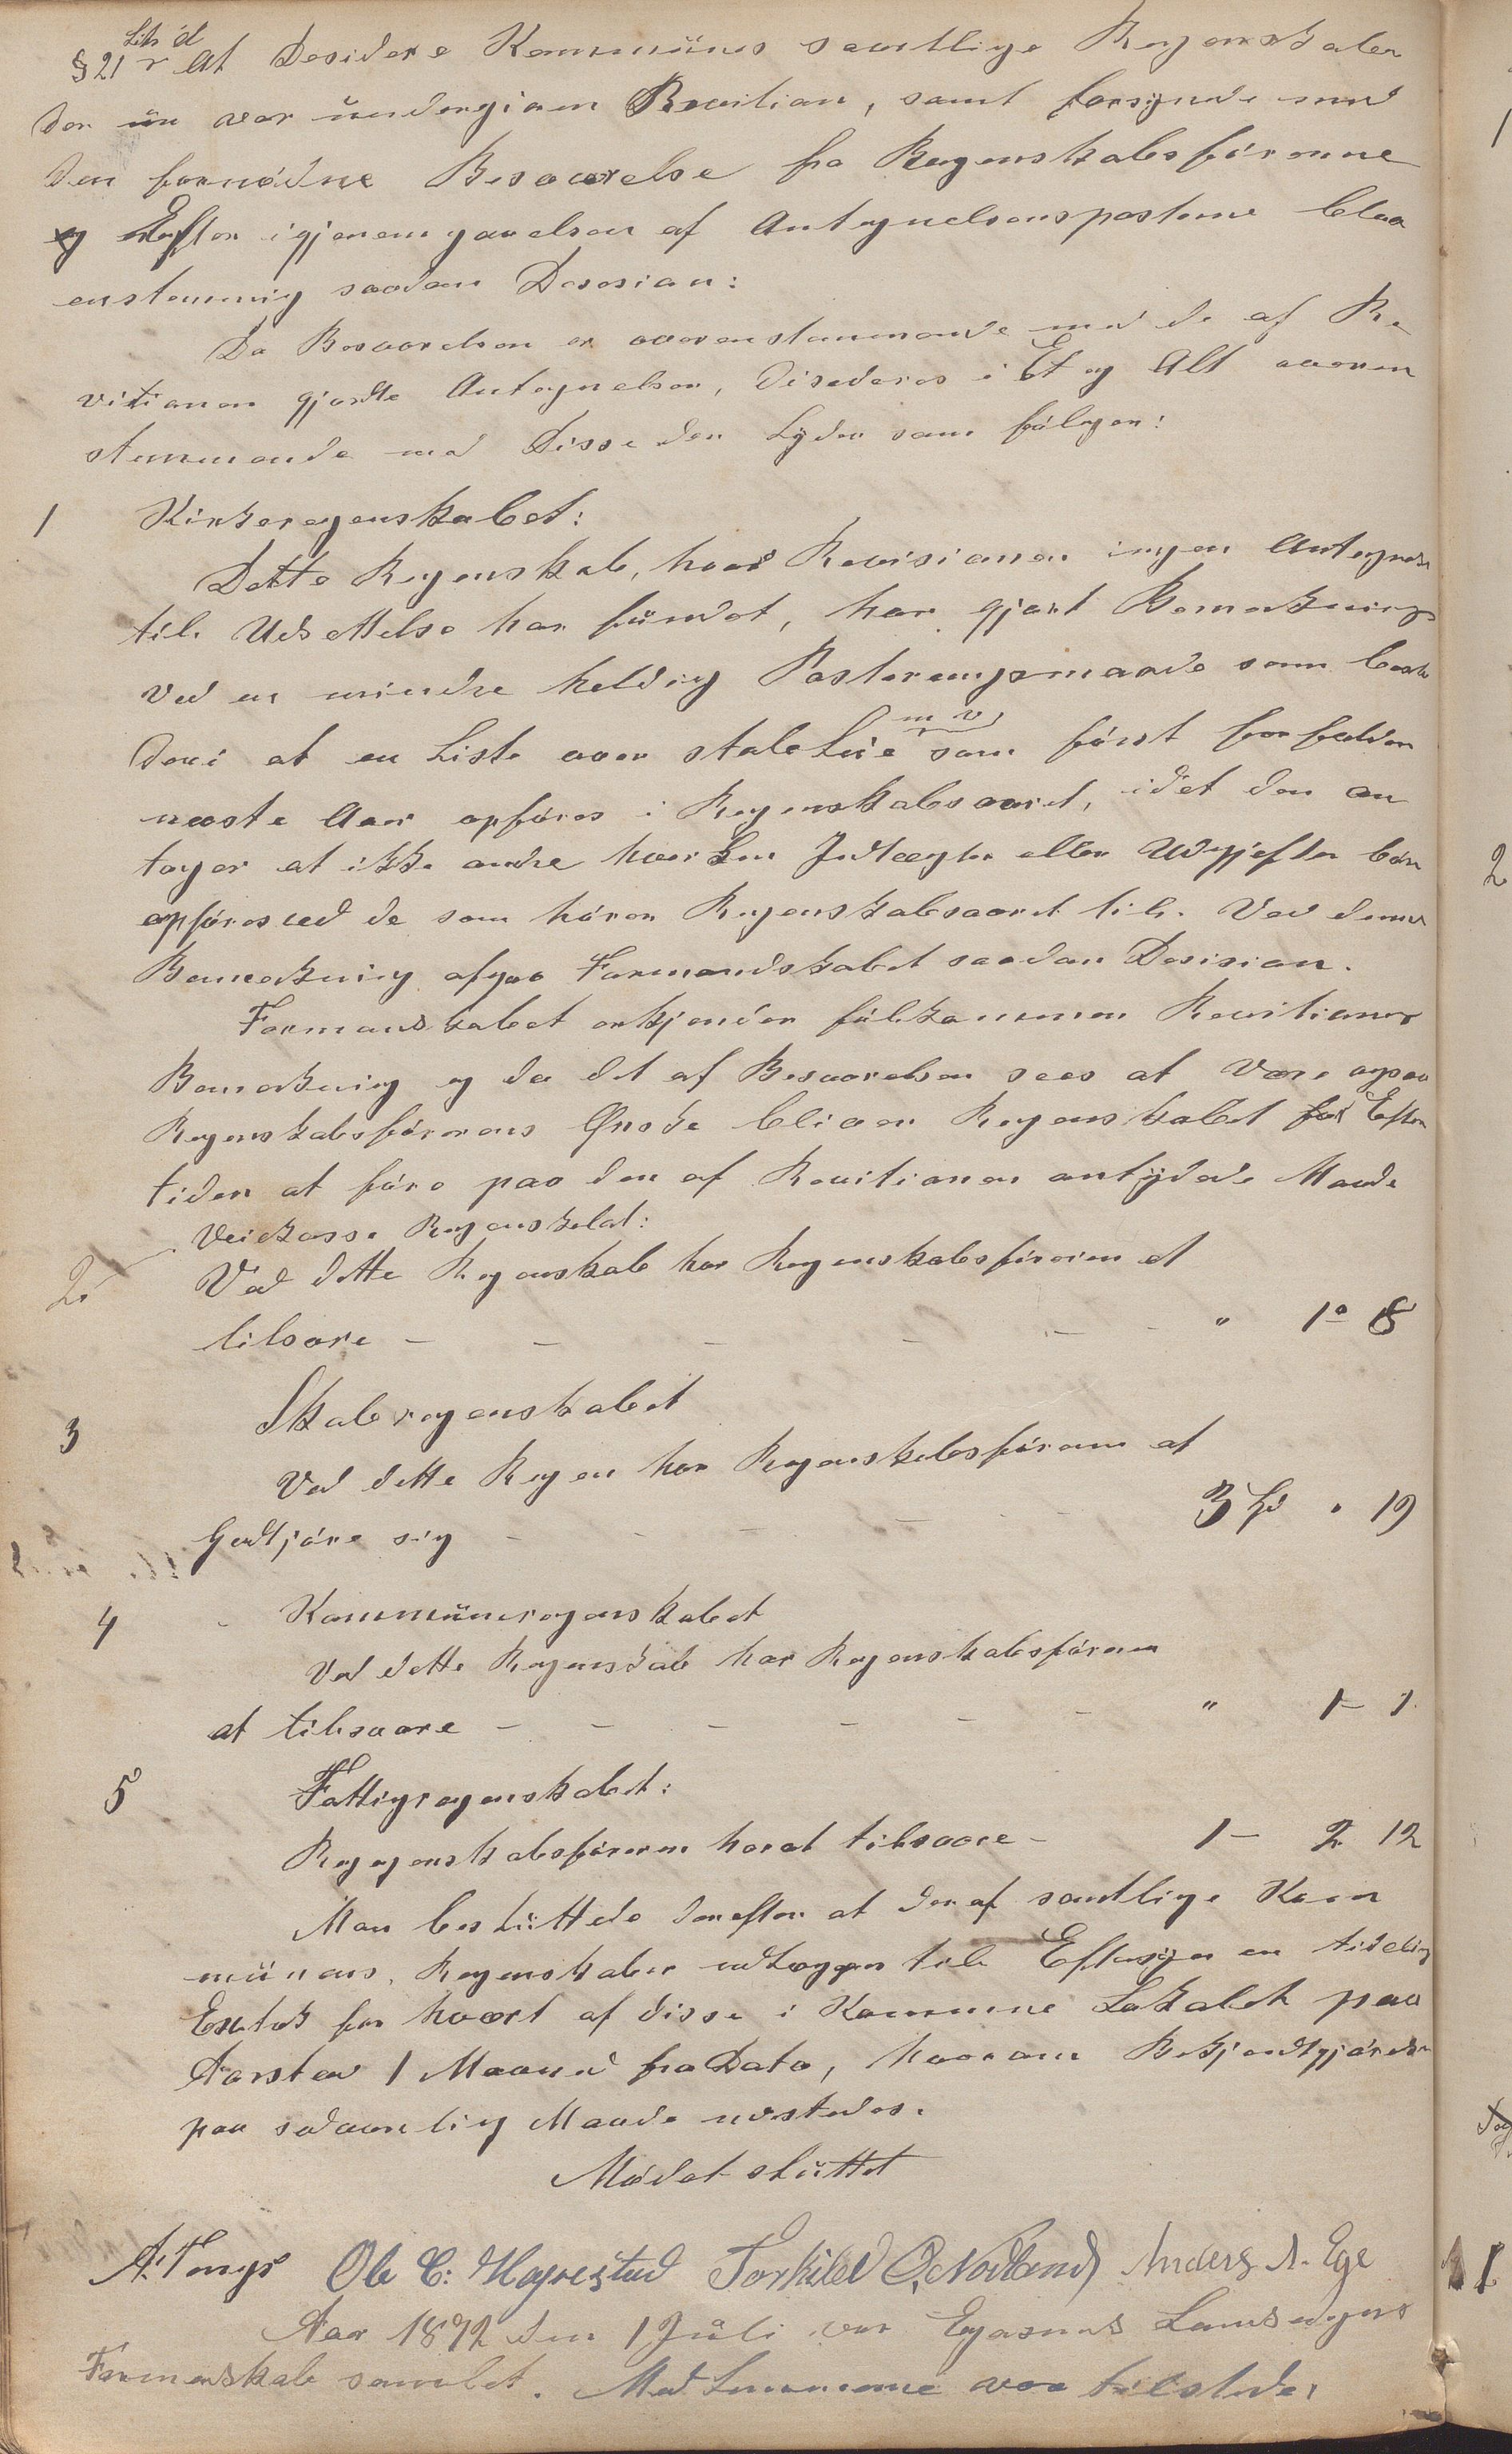 Litr d
§ 21 r At Desidere Kommünens samtlige Regenskaber
der nu var undergiven Revitian, samt forsynede med
den fornødne Besvarelse fra Regenskabsførerne
og Efter igjenemgaaelsen af Antegnelsensposterne blev
enstemmig saadan Desisian:
Da Besvarelsen er overenstemmende med de af Re
vitianen gjordte Antegnelser, Disederes i Et og Alt overen
stemmende med Disse der Lyder som følger:
1 Kirkeregenskabet:
Dette Regenskab, hvor Revisianen ingen Antegnelse
til Udsettelse har fundet, har gjort Bemerkning
ved en mindre heldig Posteringsmaade som bestr
deri at en Liste over staleluie m v som først forfalder
neste Aar opføres i Regenskabsaaret, idet den an
tager at ikke andre hverken Indtægter eller Udgjefter bør
opføres end de som hører Regenskabsaaret til. Ved denne
Bemerkning afgav Formandskabet saadan Desisian.
Formandskabet erkjender fulkommen Revitianens
Bemerkning og da det af Besvarelsen sees at Vere ogsaa
Regenskabsførerens Ønske bliver Regenskabet for Efter
tiden at føre paa den af Revitianen antydede Maade
Veikasse Regenskabet:
2. Ved dette Regenskab har Regenskabsføreren at
tilsvare - - - - - - " 1o 8
3 Skoleregenskabet
Ved dette Regen har Regenskabsføreren at
Godtjøre sig - - - - - 3 Sp " 19
4 Kommüneregenskabet
Ved dette Regenskab har Regenskabsføreren
at tilsvare - - - - - - " 1- 1
5 Fattigregenskabet:
Regegenskabsføreren har at tilsvare - 1 - 2 12
Man besluttede derefter at der af samtlige Kom
münens, Regenskaber udlægges til Eftersyn en tidelig
Extrakt for hvert af disse i Kommune Lokalet paa
Aarstad 1 Maaned fra Dato, hvorom Bekjendtgjørelse
paa sedvanlig Maade udstedes.
Mødet sluttet
A. Tengs Ole C: Hagrestad Torkild O, Nodland Anders A. Ege
Aar 1872 den 1 Juli var Egersunds Landsogns
Formenskab samlet. Medlemmerne var tilstede,